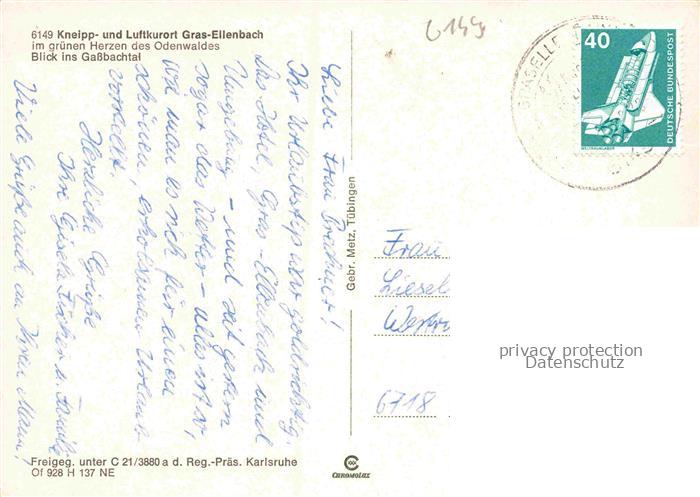 6149 Kneipp- und Luftkurort Gras-Ellenbach
im grünen Herzen des Odenwaldes
Blick ins Gaßbachtal
6149
40
DEUTSCHE BUNDESPOST
WELTRAUMLABOR
Liebe Frau
Ihr Urlaubstip war goldrichtig.
Das Hotel, Gras-Ellenbach und
Umgebung - und seit gestern
sogar das Wetter - alles ist so,
wie man es sich für einen
schönen, erholsamen Urlaub
vorstellt.
Herzliche Grüße
Ihre Gisela Fischer u. Familie
Viele Grüße auch an Ihren Mann!
Gebr. Metz, Tübingen
Frau
Liesel
6718
privacy protection
Datenschutz
Freigeg. unter C 21/3880 a d. Reg.-Präs. Karlsruhe
Of 928 H 137 NE
CHROMOLUX